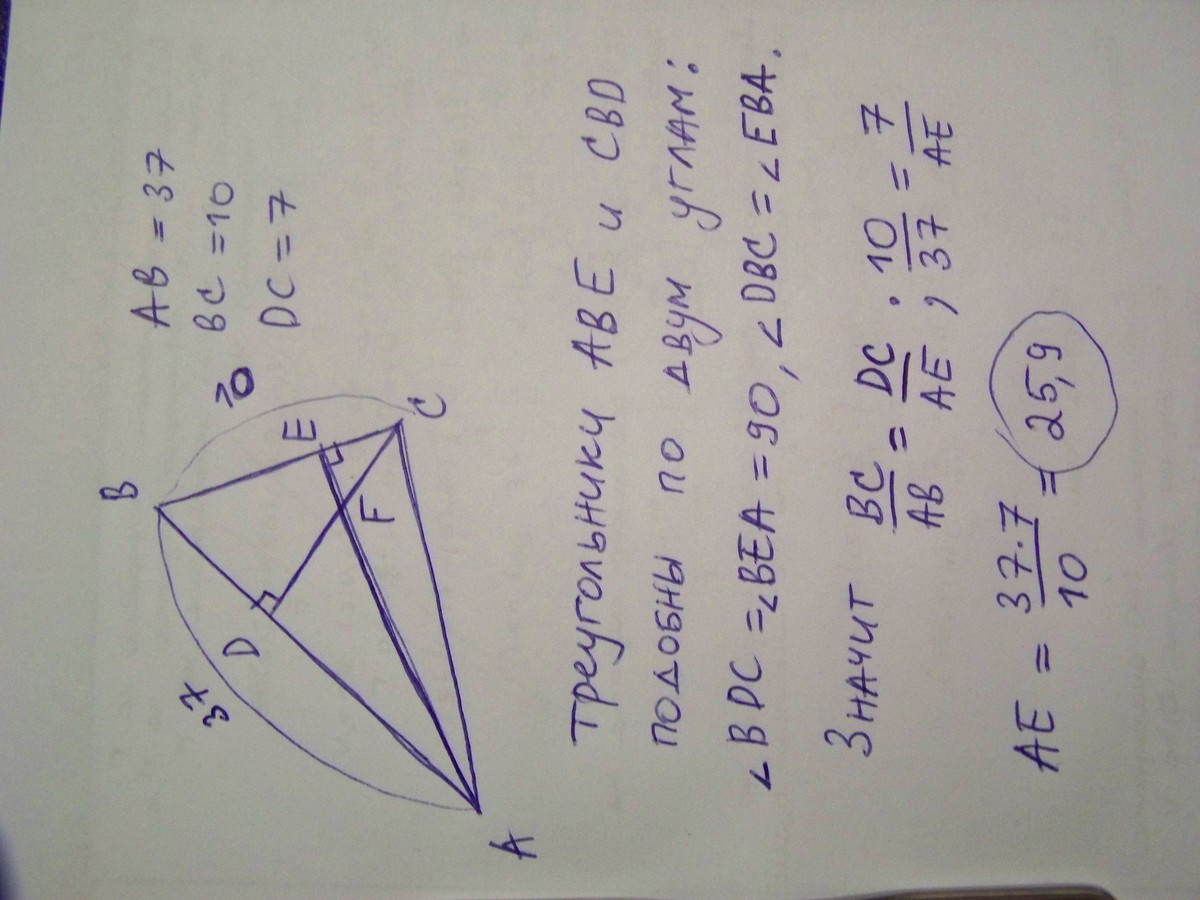 B
37
10
D
E
F
A
C
AB = 37
BC = 10
DC = 7
Треугольники ABE и CBD
подобны по двум углам:
∠BDC = ∠BEA = 90, ∠DBC = ∠EBA.
Значит BC/AB = DC/AE ; 10/37 = 7/AE
AE = 37·7/10 = 25,9